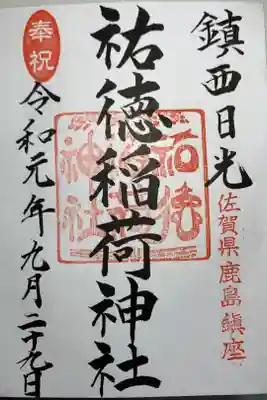 鎮西日光
佐賀県鹿島鎮座
祐徳稲荷神社
奉祝
令和元年九月二十九日